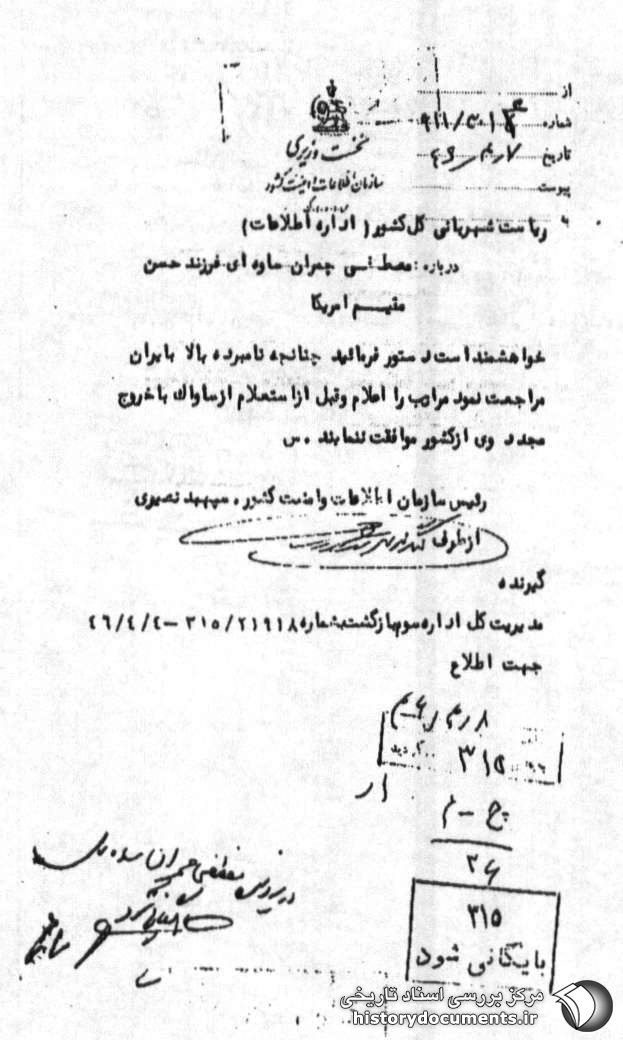 از
شماره
تاریخ
پیوست
نخست وزیری
سازمان اطلاعات و امنیت کشور
ریاست شهربانی کل کشور ( اداره اطلاعات )
درباره : مصطفی چمران ساوه ای فرزند حسن
مقیم امریکا
خواهشمند است دستور فرمائید چنانچه نامبرده بالا بایران
مراجعت نمود مراتب را اعلام وقبل ازاستعلام ازساواك باخروج
مجدد وی ازکشور موافقت ننمایند . س
رئیس سازمان اطلاعات وامنیت کشور . سپهبد نصیری
ازطرف
گیرنده
مدیریت کل اداره سوم بازگشت بشماره ۳۱۵/۲۱۹۱۸ – ۴۶/۴/۴
جهت اطلاع
۳۱۵
۳۱۵
بایگانی شود
مرکز بررسی اسناد تاریخی
historydocuments.ir